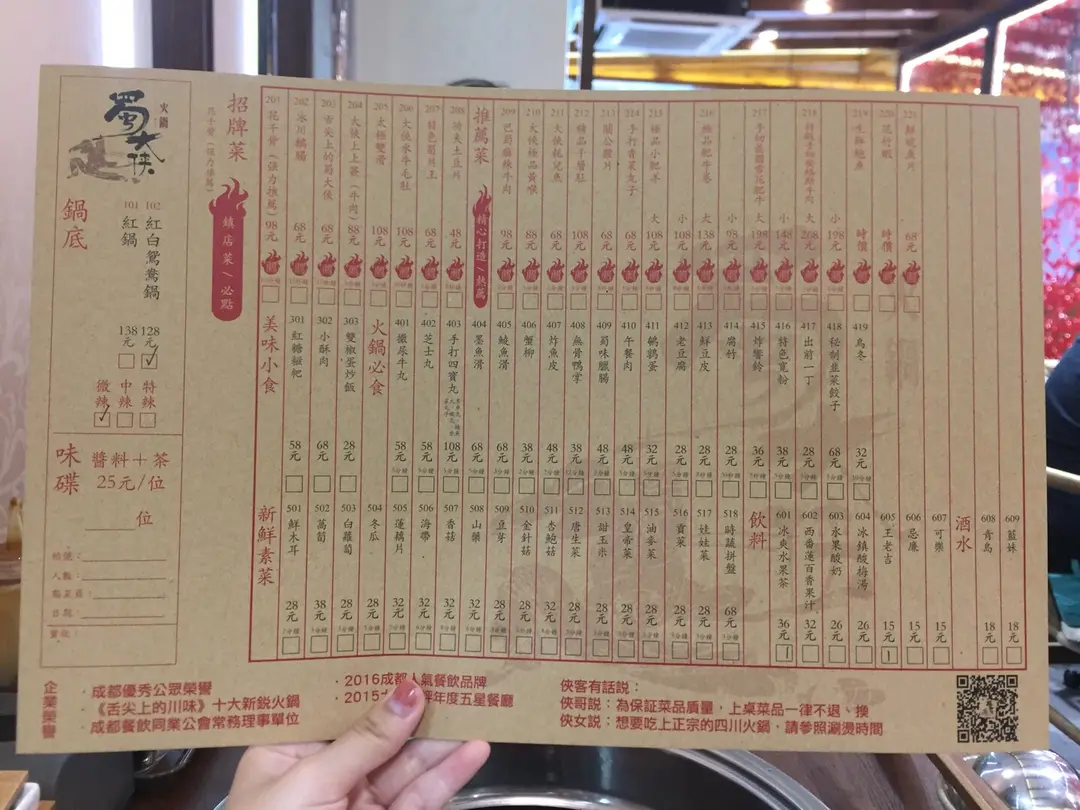 火鍋
蜀大俠
鍋底
101 紅鍋 138元
102 紅白鴛鴦鍋 128元
微辣
中辣
特辣
味碟
醬料＋茶
25元/位
位
人數：
日期：
招牌菜
鎮店菜/必點
201 花千骨(強力推薦) 98元
202 冰川鵝腸 68元
203 舌尖上的蜀大俠 68元
204 大俠上上簽(牛肉) 88元
205 太極雙滑 108元
206 大俠水牛毛肚 108元
207 68元
208 功夫土豆片 48元
推薦菜
精心打造/熱薦
209 巴蜀麻辣牛肉 98元
210 大俠極品黃喉 88元
211 68元
212 精品千層肚 108元
213 68元
214 手打香菜丸子 68元
215 極品小肥羊 大 108元
小 108元
216 極品肥牛卷 大 138元
小 98元
217 大 198元
小 148元
218 大 268元
小 198元
219 生猛鮑魚 時價
220 花竹蝦 時價
221 68元
美味小食
301 紅糖糍粑 58元
302 小酥肉 68元
303 雙椒蛋炒飯 28元
火鍋必食
401 撒尿牛丸 58元
402 芝士丸 58元
403 手打四寶丸 108元
404 墨魚滑 68元
405 鯪魚滑 68元
406 蟹柳 38元
407 炸魚皮 48元
408 無骨鴨掌 38元
409 蜀味臘腸 48元
410 午餐肉 48元
411 鵪鶉蛋 32元
412 老豆腐 28元
413 鮮豆皮 28元
414 腐竹 28元
415 炸響鈴 36元
416 特色寬粉 38元
417 出前一丁 28元
418 秘制韭菜餃子 68元
419 烏冬 32元
新鮮素菜
501 鮮木耳 28元
502 萵筍 38元
503 白蘿蔔 28元
504 冬瓜 28元
505 蓮藕片 32元
506 海帶 32元
507 香菇 32元
508 山藥 32元
509 豆芽 28元
510 金針菇 28元
511 杏鮑菇 32元
512 唐生菜 28元
513 甜玉米 28元
514 皇帝菜 28元
515 油麥菜 28元
516 貢菜 28元
517 娃娃菜 28元
518 時蔬拼盤 68元
飲料
601 冰爽水果茶 36元
602 西番蓮百香果汁 32元
603 水果酸奶 26元
604 冰鎮酸梅湯 26元
605 王老吉 15元
606 忌廉 15元
607 可樂 15元
酒水
608 青島 18元
609 藍妹 18元
企業榮譽
·成都優秀公眾榮譽
·《舌尖上的川味》十大新銳火鍋
·成都餐飲同業公會常務理事單位
·2016成都人氣餐飲品牌
·2015 評年度五星餐廳
俠客有話說：
俠哥說：為保証菜品質量，上桌菜品一律不退、換
俠女說：想要吃上正宗的四川火鍋，請參照涮燙時間